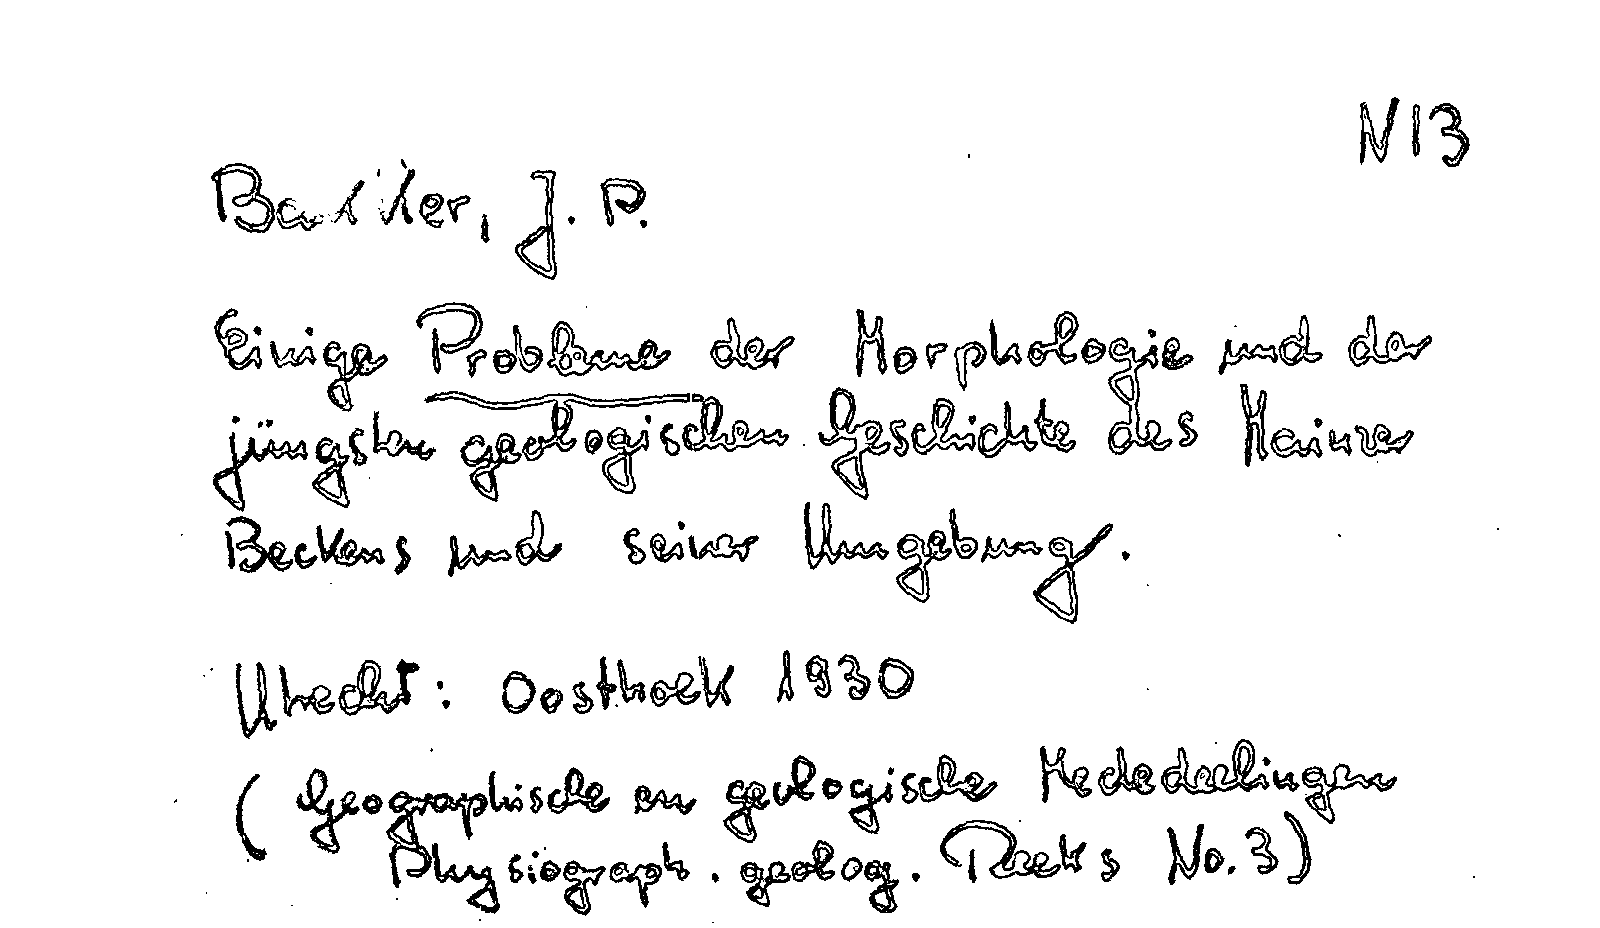 N13
Bakker, J. P.
Einige Probleme der Morphologie und der
jüngsten geologischen Geschichte des Mainzer
Beckens und seiner Umgebung.
Utrecht: Oosthoek 1930
(Geographische en geologische Mededeelingen
Physiograph. geolog. Reeks No. 3)